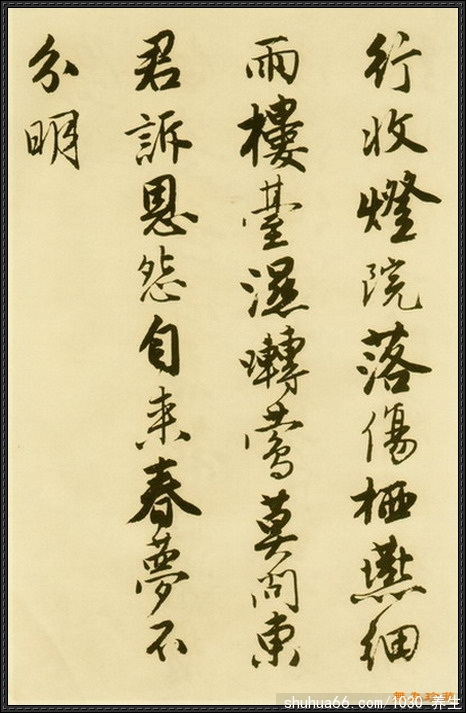 行收燈院落傷栖燕細
雨樓臺濕囀鶯莫問東
君訴恩怨自来春夢不
分明
shuhua66.com/1030 养生